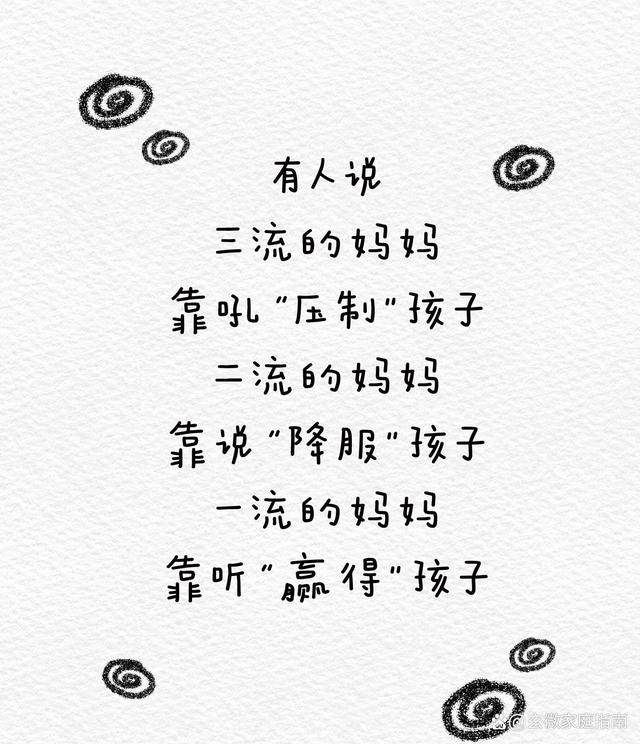 有人说
三流的妈妈
靠吼"压制"孩子
二流的妈妈
靠说"降服"孩子
一流的妈妈
靠听"赢得"孩子
@玄微家庭指南